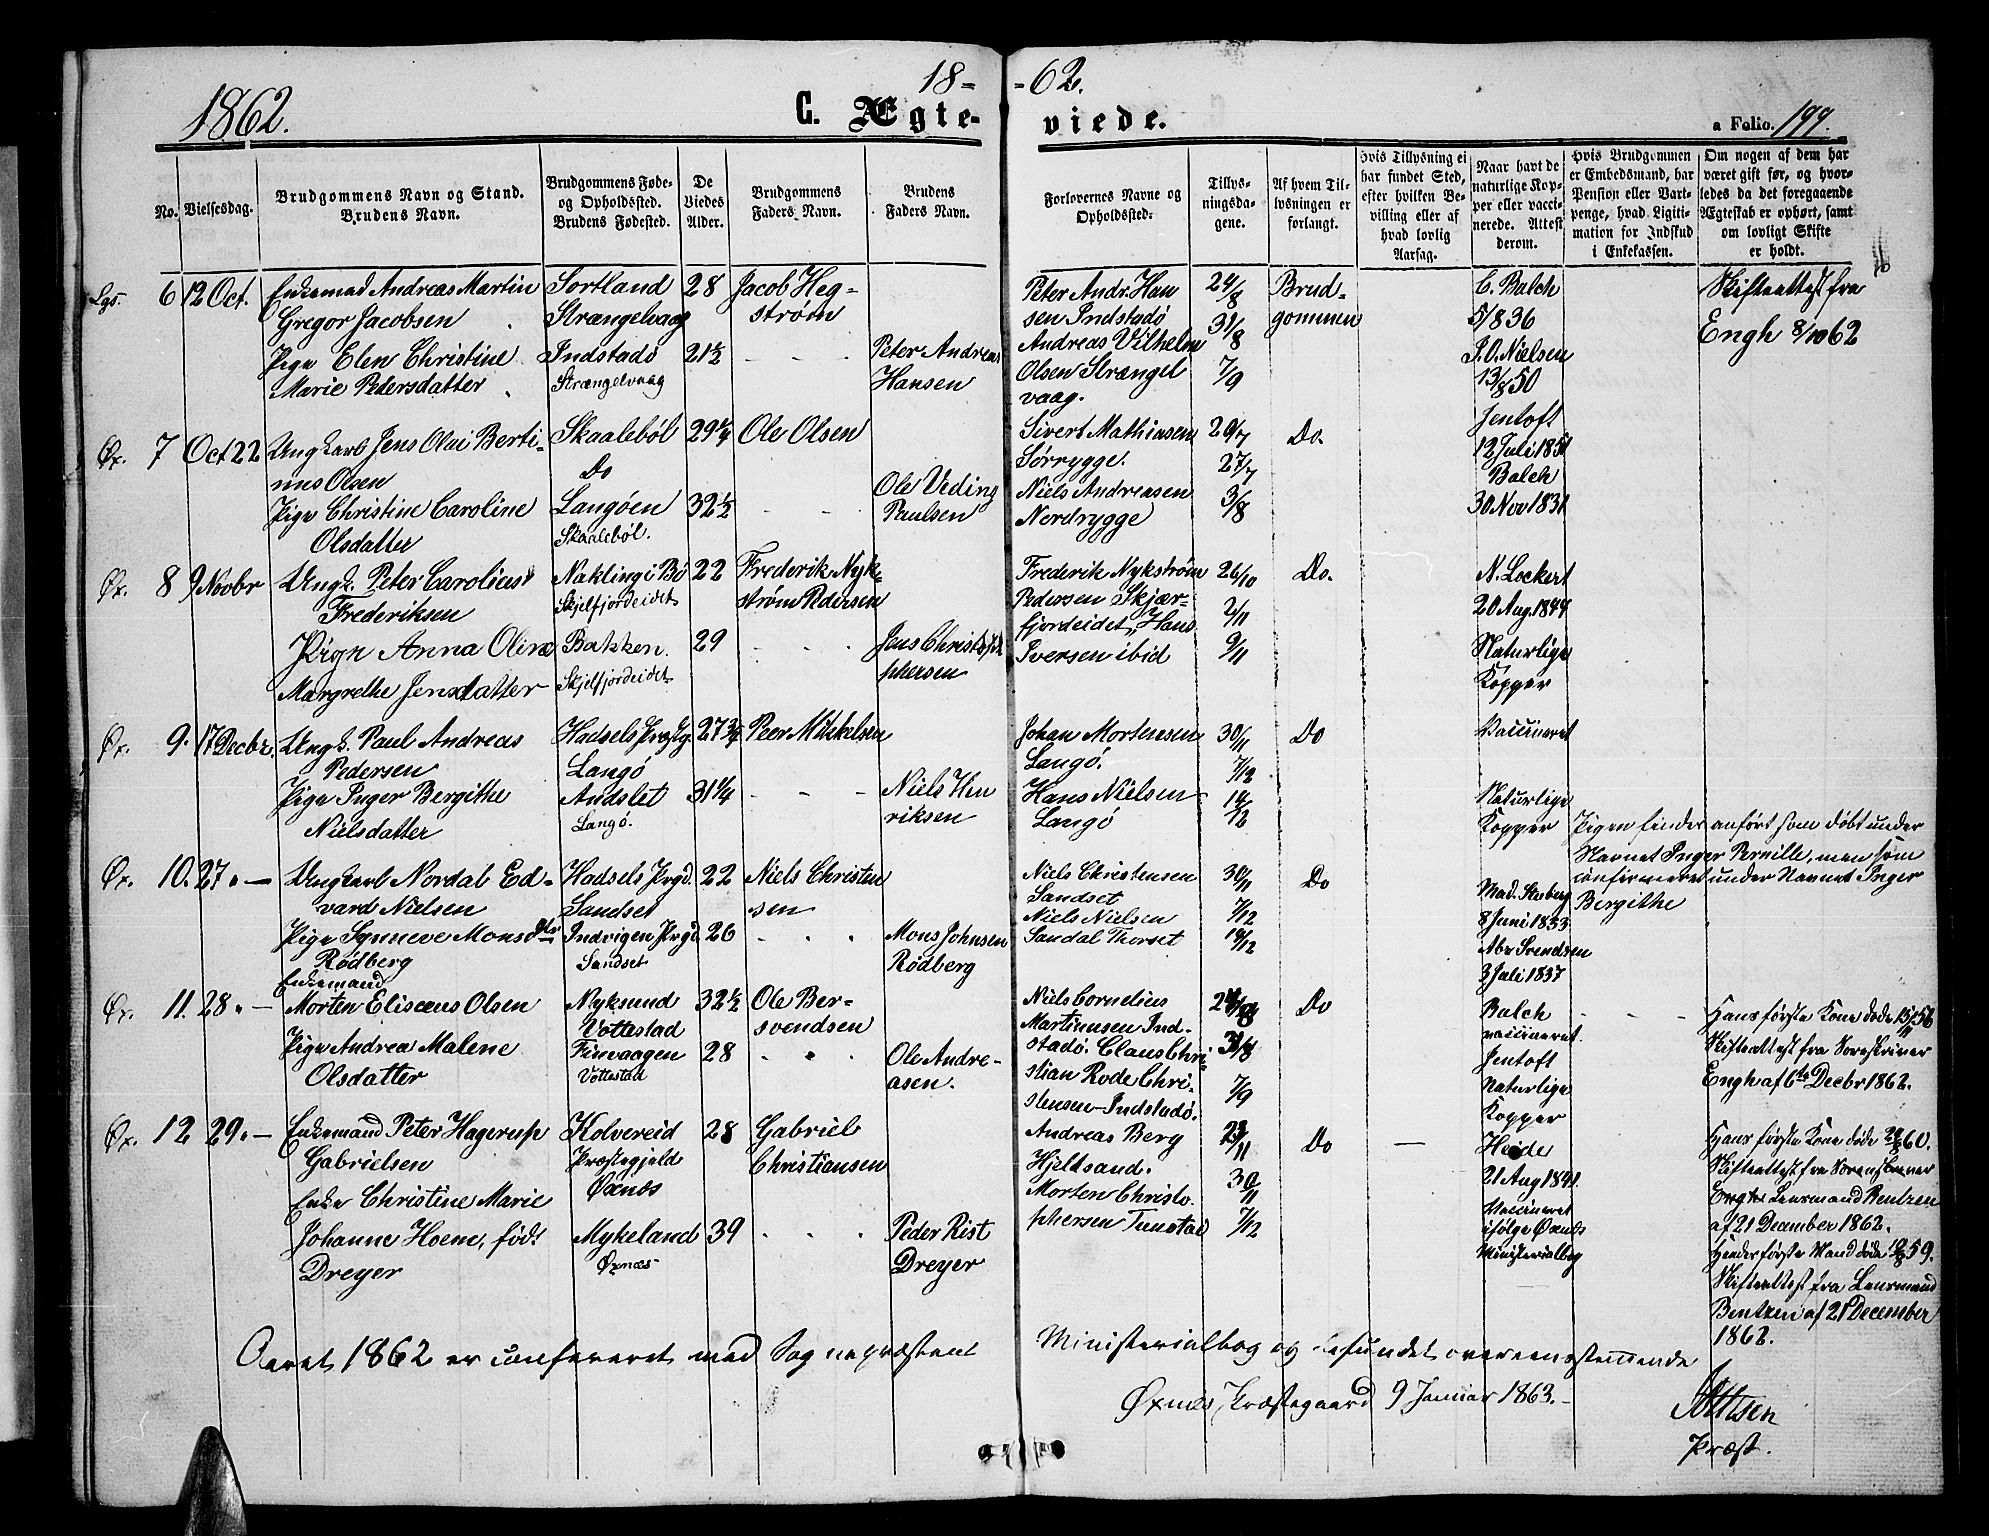 1862.
18= =62.
C. Ægte= viede.
a Folio. 199.
No.
Vielsesdag.
Brudgommens Navn og Stand. Brudens Navn.
Brudgommens Føde- og Opholdssted. Brudens Fødested.
De Viedes Alder.
Brudgommens Faders Navn.
Brudens Faders Navn.
Forlovernes Navne og Opholdssted.
Tillysningsdagene.
Af hvem Tillysningen er forlangt.
Hvis Tillysning ei har fundet Sted, efter hvilken Bevilling eller af hvad lovlig Aarsag.
Naar havt de naturlige Kopper eller vaccinerede. Attest derom.
Hvis Brudgommen er Embedsmand, har Pension eller Vartpenge, hvad Ligitimation for Indskud i Enkekassen.
Om nogen af dem har været gift før, og hvorledes da det foregaaende Ægteskab er ophørt, samt om lovligt Skifte er holdt.
Lgs. 6 12 Oct. Enkemad Andreas Martin Sortland 28 Jacob Heg-
Gregor Jacobsen Strængelvaag strøm
Pige Elen Christine Indstadø 21½ - - Peter Andreas
Marie Pedersdatter Strængelvaag Hansen
Peter Andr. Han 24/8 Brud- C. Balch Skifteattest fra
sen Indstadø 31/8 gommen 5/8 36 Engh 8/10 62
Andreas Vilhelm J. O. Nielsen
Olsen Strængel 7/9 13/8 50
vaag.
Øx. 7 Oct 22 Ungkarl Jens Olai Berti- Skaalebøl 29¼ Ole Olsen
nus Olsen Do
Pige Christine Caroline Langøen 32½ - - Ole Veding
Olsdatter Skaalebøl. Paulsen
Sivert Mathiasen 20/7 Do. Jentoft
Sørrygge. 27/7 12 Juli 1851
Niels Andreasen 3/8 Balch
Nordrygge 30 Nov 1831
Øx. 8 9 Novbr Ungk. Peter Carolius Naklingi Bø 22 Frederik Nyk-
Frederiksen Skjelfjordeidet strøm Pedersen
Pige Anna Oline Bakken 29 - - Jens Christo
Margrethe Jensdatter Skjelfjordeidet phersen
Frederik Nykstrøm 26/10 Do. N. Lockert
Pedersen Skjær- 2/11 20 Aug. 1844
fjordeidet, Hans Naturlige
Iversen ibid 9/11 Kopper
Øx. 9. 17 Decbr. Ungk. Paul Andreas Hadsels Præstg. 27¾ Peer Mikkelsen
Pedersen Langø
Pige Inger Bergithe Andslet 31¼ - - - Niels Hen
Nielsdatter Langø. riksen
Johan Mortensen 30/11 Do Vaccineret
Langø. 7/12
Hans Nielsen 14/12 Naturlige
Langø Kopper
Pigen findes anført som døbt under
Navnet Inger Pernille, men som
confirmeret under Navnet Inger
Bergithe
Øx. 10. 27 - Ungkarl Nordal Ed- Hadsels Prgd. 22 Niels Christen
vard Nielsen Sandset sen
Pige Synneve Monsdtr Indvigen Prgd 26 - - Mons Johnsen
Rødberg Sandset Rødberg
Niels Christensen 30/11 Do
Sandset 7/12 8 Juni 1853
Niels Nielsen Abr Svendsen
Sandal Thorset 14/12 3 Juli 1837
Enkemand
Øx. 11. 28. - Morten Elisæus Olsen Nyksund 32½ Ole Ber-
Vottestad svendsen
Pige Andrea Malene Finvaagen 28 - - Ole Andre-
Olsdatter Vottestad asen.
Niels Cornelius 24/8 Do Balch - - Hans første Kone døde
Martinusen Ind- vaccineret.
stadø. Claus Chri- 31/8 Jentoft Skifteattest fra Sorenskriver
stian Rode Chri- 7/9 Naturlige Engh af 6te Decbr 1862.
stensen Indstadø. Kopper
Øx. 12 29. - Enkemand Peter Hagerup Kolvereid 28 Gabriel
Gabrielsen Præstegjeld Christiansen
Øxnæs
Enke Christine Marie
Johanne Hoem, født Mykeland 39 - - Peder Rist
Dreyer Øxnæs Dreyer
Andreas Berg 23/11 Do - Heide Hans første Kone døde
Hjeltsand. 21 Aug 1841 Skifteattest fra
Morten Christo. 30/11 Vaccineret Lensmand Bentzen
phersen Tunstad 7/12 ifølge Øxnæs af 21 December 1862.
Ministerialbog Hendes første Mand døde
Skifteattest fra Lensmand
Bentzen af 21 December
1862.
Aaret 1862 er confereret med Sognepræstens Ministerialbog og befundet overeensstemmende
Øxnæs Præstegaard 9 Januar 1863.
Præst.